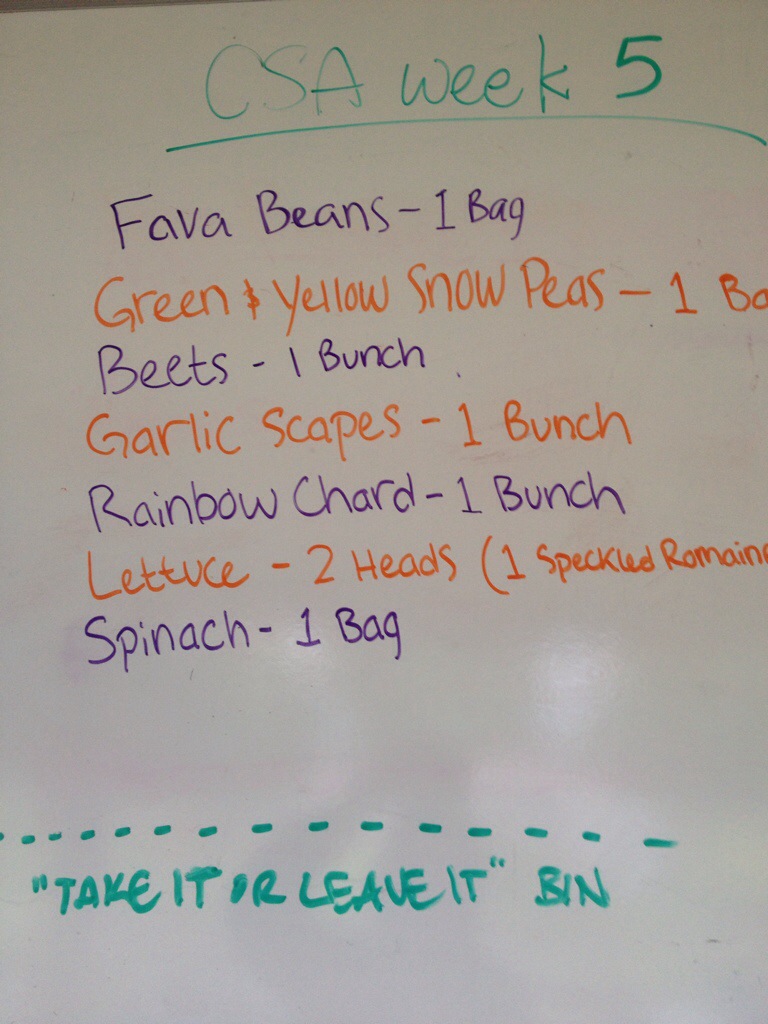 CSA week 5
Fava Beans - 1 Bag
Green & Yellow Snow Peas - 1 Ba
Beets - 1 Bunch
Garlic Scapes - 1 Bunch
Rainbow Chard - 1 Bunch
Lettuce - 2 Heads (1 Speckled Romain
Spinach - 1 Bag
"TAKE IT OR LEAVE IT" BIN